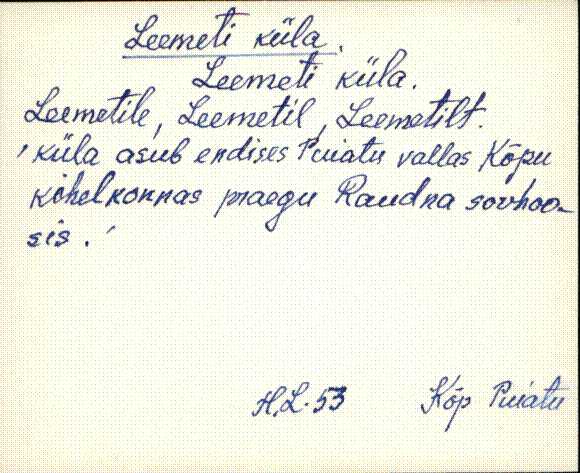 Leemeti küla.
Leemeti küla.
Leemetile, Leemetil, Leemetilt.
'küla asub endises Puiatu vallas Kõpu
kihelkonnas praegu Raudna sovhoo-
sis.'
H.L. 53 Kõp Puiatu